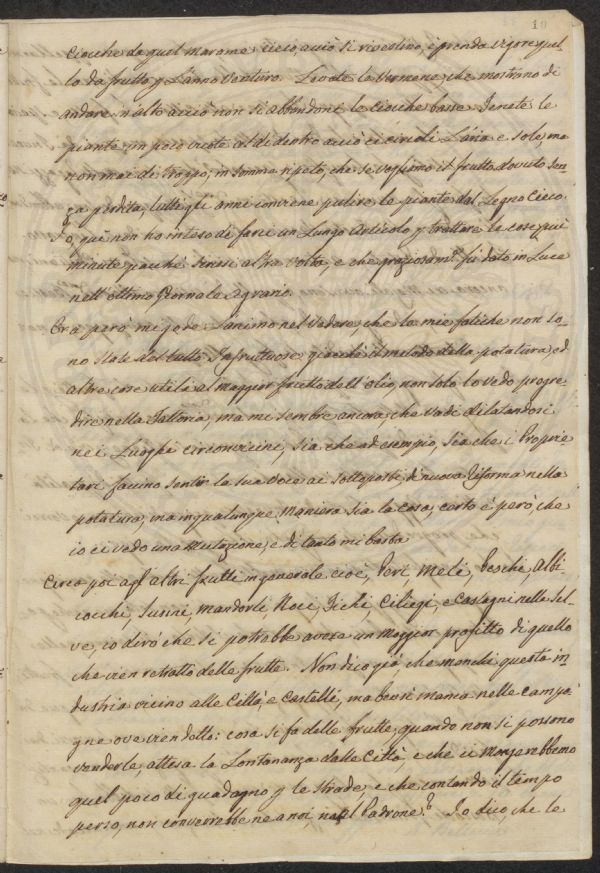 10
ciocche da quel marame secco, acciò si rivestino, e prenda vigore quel
lo da frutto p L'anno venturo. Levate le vermene, che mostrino di
andare in alto acciò non si abbandoni le ciocche basse. Tenete le
piante un poco vuote al di dentro acciò ci circoli L'aria e sole, ma
non mai di troppo, in somma ripeto, che se vogliamo il frutto dovuto sen-
za perdita, tutti gli anni conviene pulire le piante dal Legno secco.
Io quì non ho inteso di farci un Lungo Articolo p trattare le cose più
minute poiché tenesi altra volta, e che graziosam.e fù dato in Luce
nell'ottimo Giornale agrario.
Ora però mi gode L'animo nel vedere, che le mie fatiche non so-
no state del tutto Infruttuose giacché il metodo della potatura, ed
altre cose utili al maggior frutto dell'olio, non solo lo vedo progre-
dire nella Fattoria, ma mi sembra ancora, che vadi dilatandosi
nei Luoghi circonvicini, sia che ad esempio, sia che i Proprie-
tari faccino sentir la sua voce ai sottoposti di nuova riforma nella
potatura, ma in qualunque Maniera sia la cosa, certo è però, che
io ci vedo una Mutazione, e di tanto mi basta
Circa poi agl'altri frutti in generale cioè, Peri, Meli, Peschi, Albi-
cocchi, Susini, Mandorli, Noci, Fichi, Ciliegi, e Castagni nelle Sel-
ve, io dirò che si potrebbe avere un Maggior profitto di quello
che vien retratto delle frutte. Non dico già, che manchi questa in-
dustria vicino alle Città, e Castelli, ma bensì manca nelle campa
gne ove vien detto: cosa si fa delle frutte, quando non si possono
venderle, attesa la Lontananza dalle Città, e che ci Mangerebbemo
quel poco di guadagno p le strade, e che contando il tempo
perso, non converrebbe ne a noi, ne al Padrone? Io dico, che le